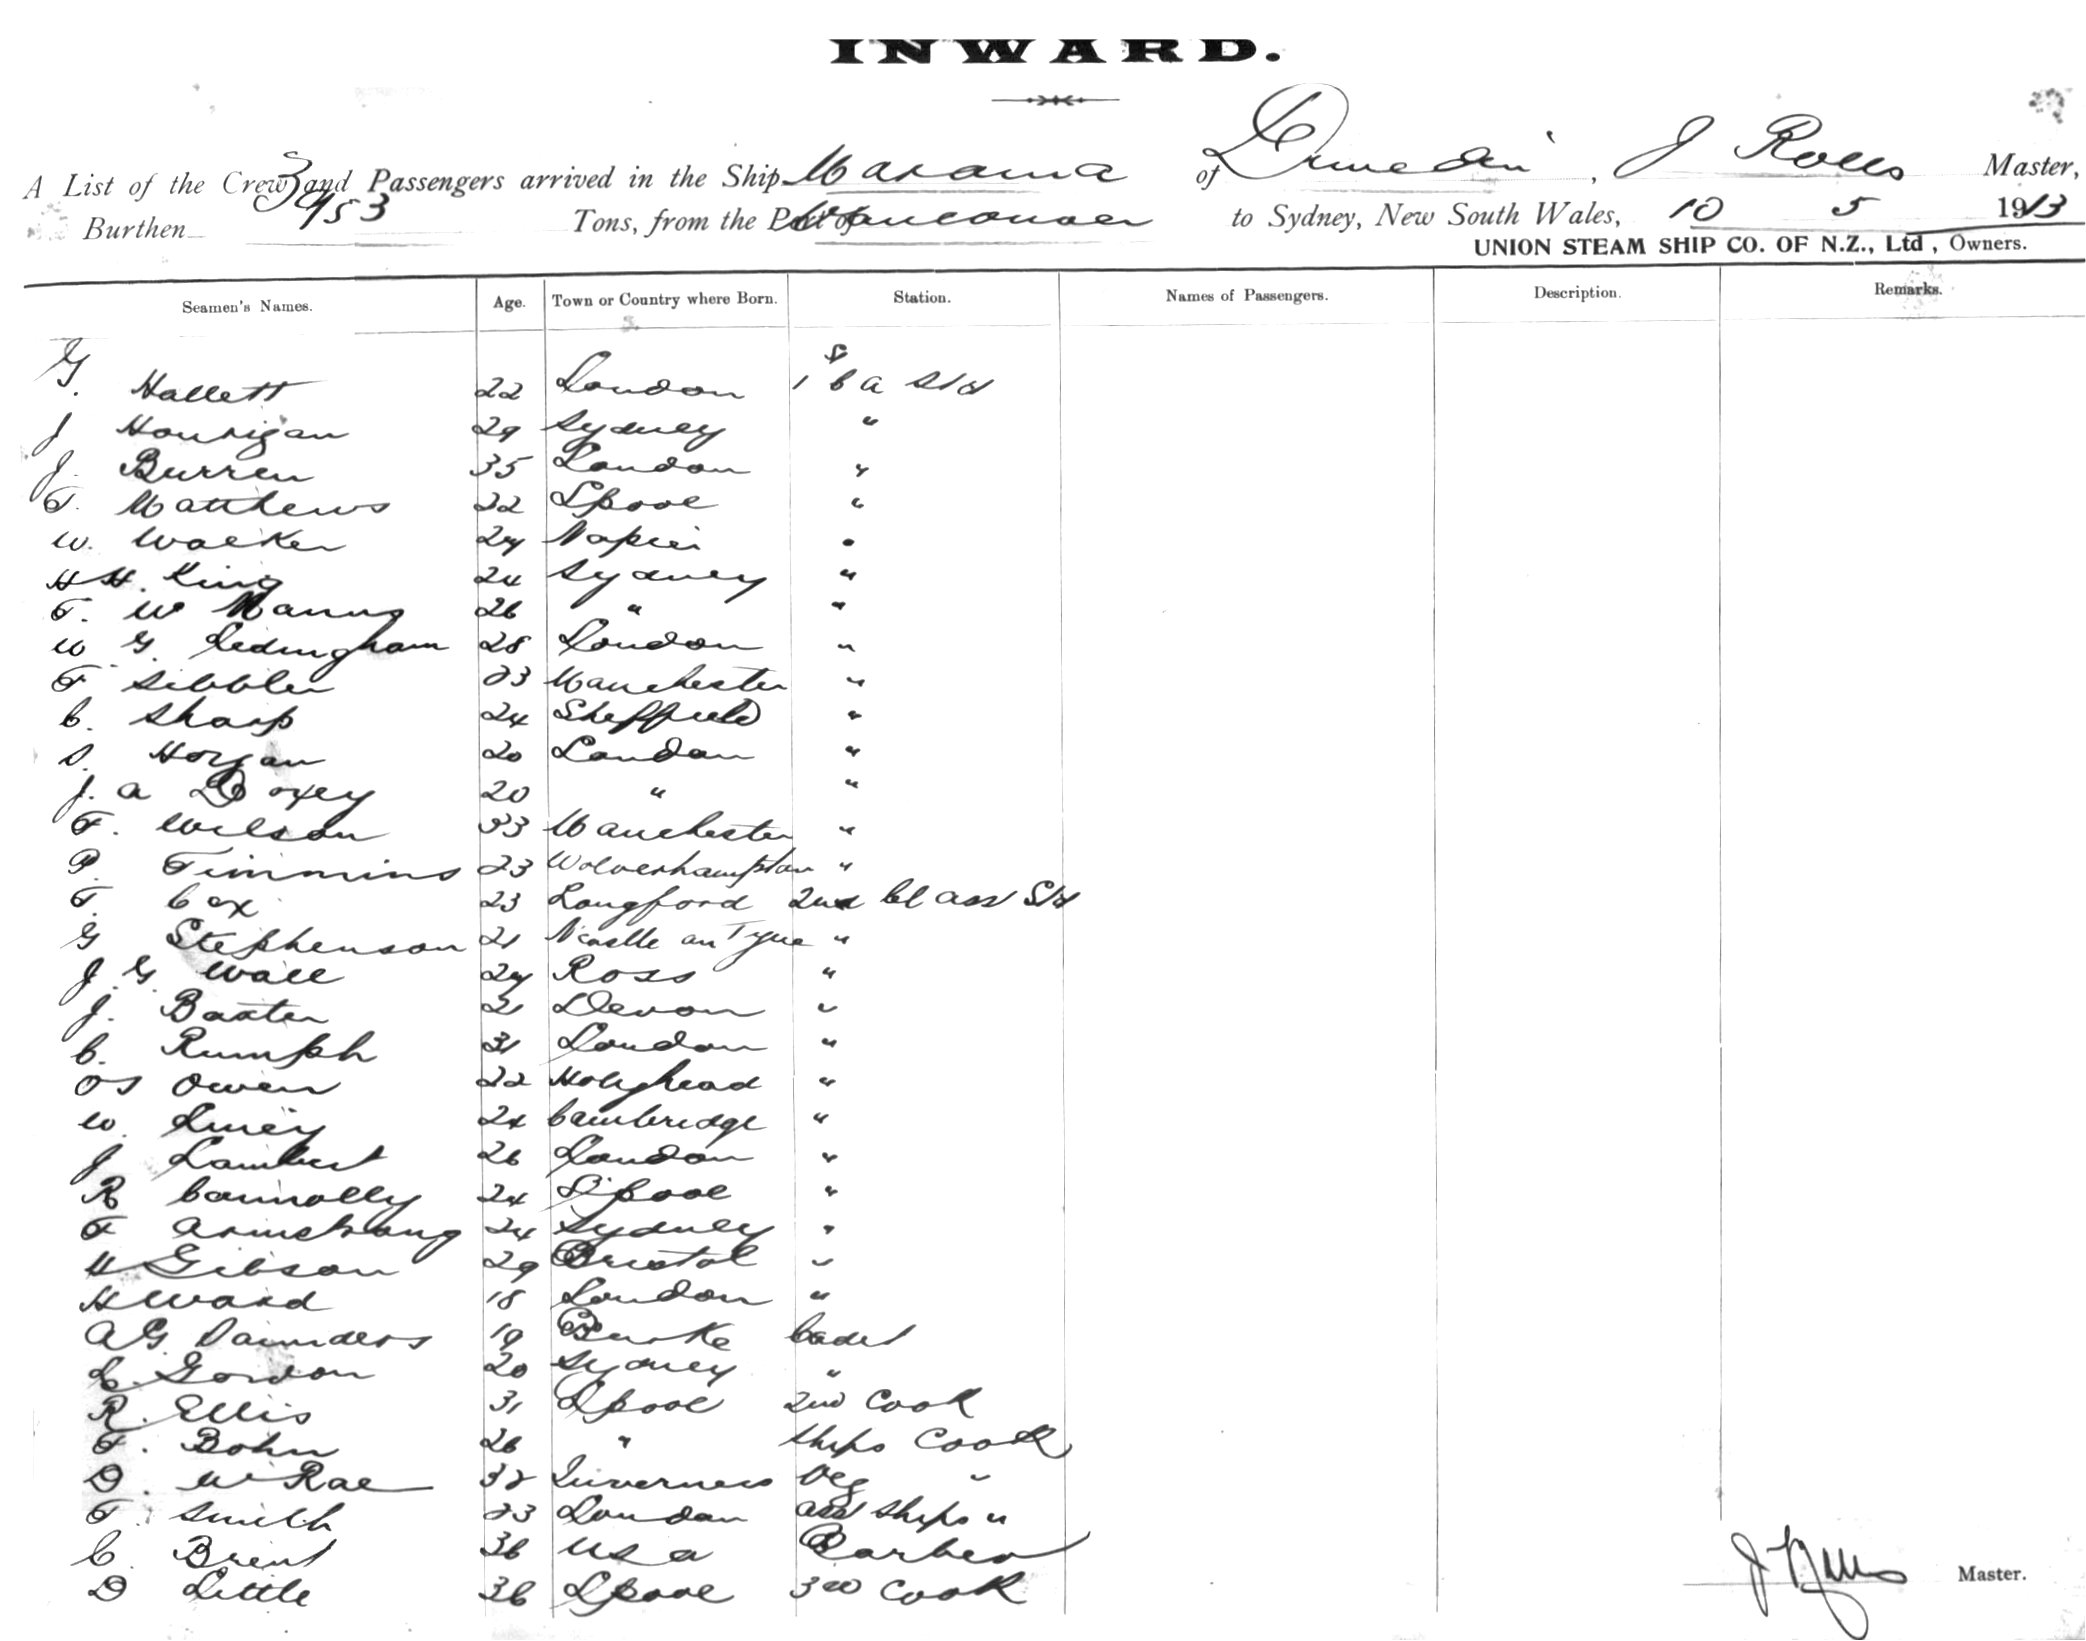 INWARD.
A List of the Crew and Passengers arrived in the Ship Marama of Dunedin, J Rolls Master,
Burthen 3953 Tons, from the Port of Vancouver to Sydney, New South Wales, 10 5 1913
UNION STEAM SHIP CO. OF N.Z., Ltd, Owners.
Seamen's Names. Age. Town or Country where Born. Station. Names of Passengers. Description. Remarks.
G. Hallett 22 London 1 Std
J Hourigan 29 Sydney "
J. Burren 35 London "
T. Matthews 22 Lpool "
W. Walker 24 Napier "
H H. King 24 Sydney "
T. W Manns 26 " "
W G. Ledingham 28 London "
F Sibbler 23 Manchester "
C. Sharp 24 Sheffield "
S. Horgan 20 London "
J. A Doxey 20 " "
F. Wilson 33 Manchester "
P. Timmins 23 Wolverhampton "
T. Cox 23 Longford 2nd Class Std
G Stephenson 21 Ncastle on Tyne "
J. G. Wall 24 Ross "
J. Baxter 21 Devon "
C. Rumph 31 London "
O S Owen 22 Holyhead "
W. 24 Cambridge "
J Lambert 26 London "
R Connolly 24 L'pool "
F Armstrong 24 Sydney "
H Gibson 29 Bristol "
H Ward 18 London "
A G. Saunders 19 Burke Cadet
Gordon 20 Sydney "
R. Ellis 31 Lpool 2nd Cook
F. Bohn 26 " Ships Cook
D. McRae 32 Inverness Veg "
T. Smith 23 London Asst Ships "
C. Brent 36 USA Barber
D Little 36 Lpool 3rd Cook
J Rolls Master.